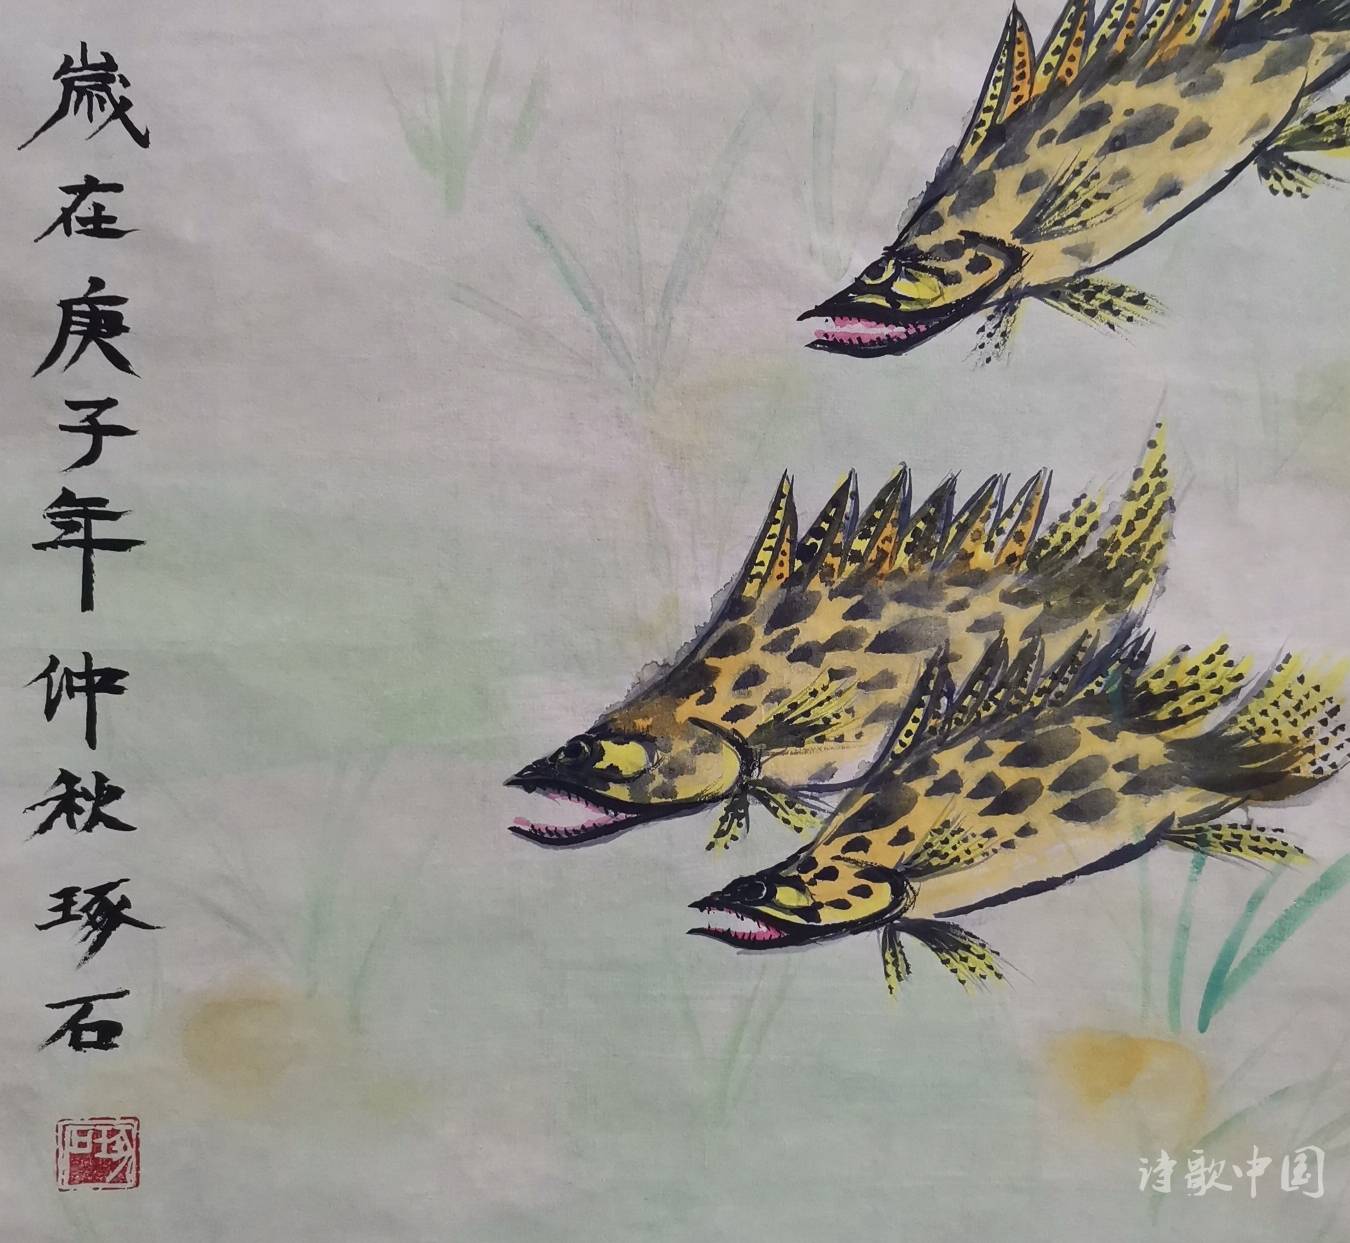 歲在庚子年仲秋琢石
诗歌中国